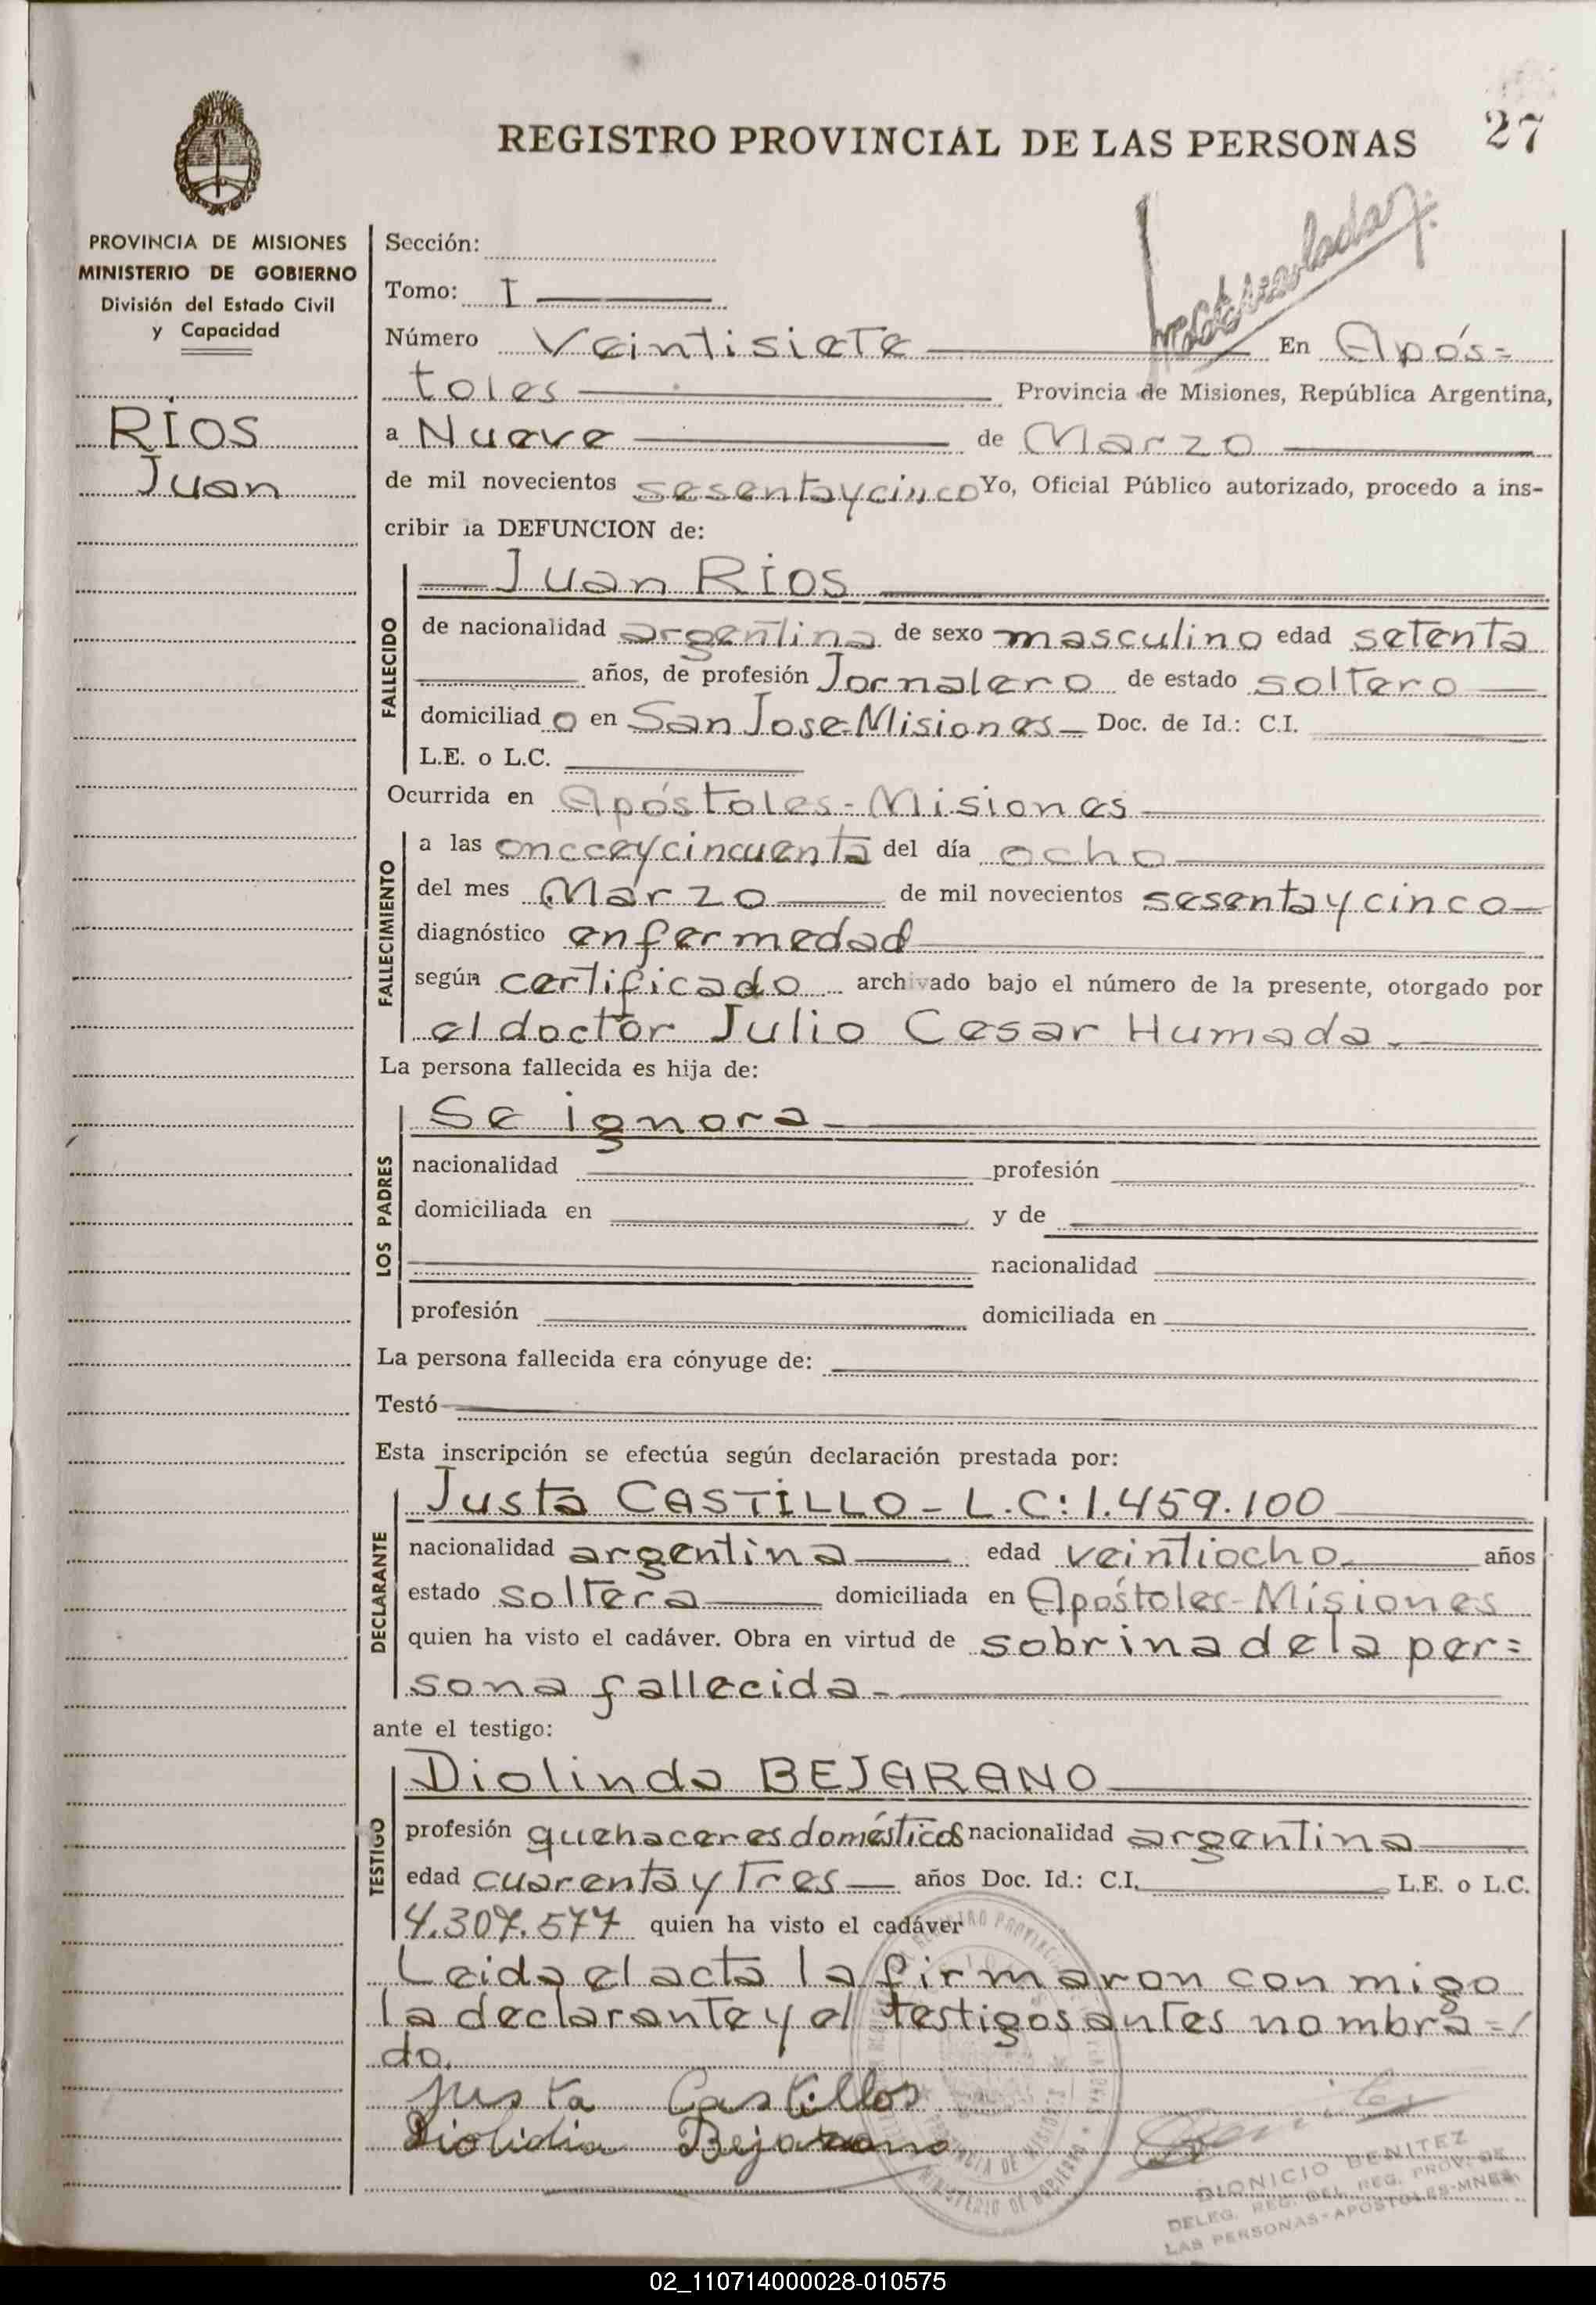 REGISTRO PROVINCIAL DE LAS PERSONAS 27
PROVINCIA DE MISIONES
MINISTERIO DE GOBIERNO
División del Estado Civil
y Capacidad
RÍOS
Juan
Sección:
Tomo: I
Número Veintisiete En Após=
toles Provincia de Misiones, República Argentina,
a Nueve de Marzo
de mil novecientos sesentaycinco Yo, Oficial Público autorizado, procedo a ins-
cribir la DEFUNCION de:
FALLECIDO
Juan Ríos
de nacionalidad argentina de sexo masculino edad setenta
años, de profesión Jornalero de estado soltero
domiciliad o en San Jose-Misiones Doc. de Id.: C.I.
L.E. o L.C.
Ocurrida en Apóstoles-Misiones
FALLECIMIENTO
a las oncceycincuenta del día ocho
del mes Marzo de mil novecientos sesentaycinco
diagnóstico enfermedad
según certificado archivado bajo el número de la presente, otorgado por
el doctor Julio Cesar Humada.
La persona fallecida es hija de:
LOS PADRES
Se ignora
nacionalidad profesión
domiciliada en y de
nacionalidad
profesión domiciliada en
La persona fallecida era cónyuge de:
Testó
Esta inscripción se efectúa según declaración prestada por:
DECLARANTE
Justa CASTILLO - L.C: 1.459.100
nacionalidad argentina edad veintiocho. años
estado soltera domiciliada en Apóstoles-Misiones
quien ha visto el cadáver. Obra en virtud de sobrina de la per=
sona fallecida-
ante el testigo:
TESTIGO
Diolinda BEJARANO
profesión quehaceres domésticos nacionalidad argentina
edad cuarenta y Tres años Doc. Id.: C.I. L.E. o L.C.
4.307.577 quien ha visto el cadáver
Leida el acta la firmaron con migo
la declarante y el testigos antes nombra=/
do.
Justa Castillos
Diolidia Bejarano
DIONICIO BENITEZ
DELEG. REG. DEL REG. PROV. DE
LAS PERSONAS-APOSTOLES-MNES.
02_110714000028-010575